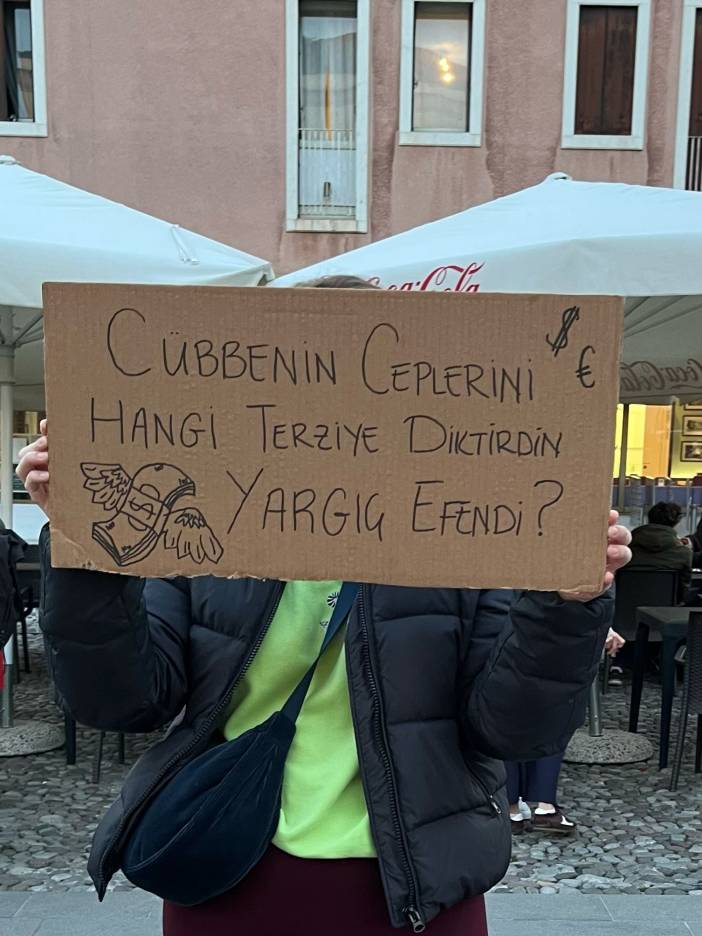 Coca-Cola
$
€
CÜBBENİN CEPLERİNİ
HANGİ TERZİYE DİKTİRDİN
$
YARGIÇ EFENDİ?
Coca-Cola